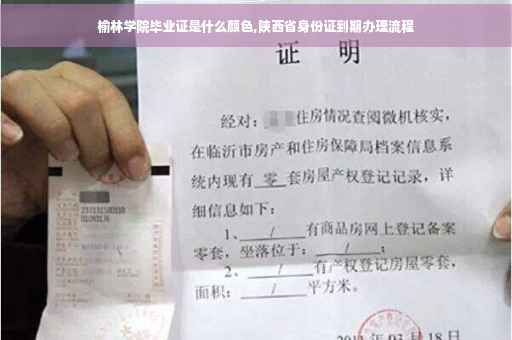 榆林学院毕业证是什么颜色,陕西省身份证到期办理流程
证 明
经对:住房情况查阅微机核实,
在临沂市房产和住房保障局档案信息系
统内现有 零 套房屋产权登记记录,详
细信息如下:
1、 / 有商品房网上登记备案
零套,坐落位于: / ;
2、 / 有产权登记房屋零套,
面积: / 平方米。